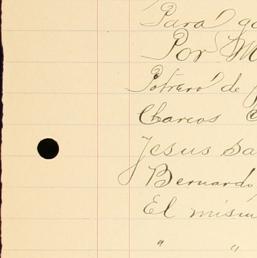 Para ga
Por M
Potrero de
Charcos
Jesus Sa
Bernardo
El mism
" "